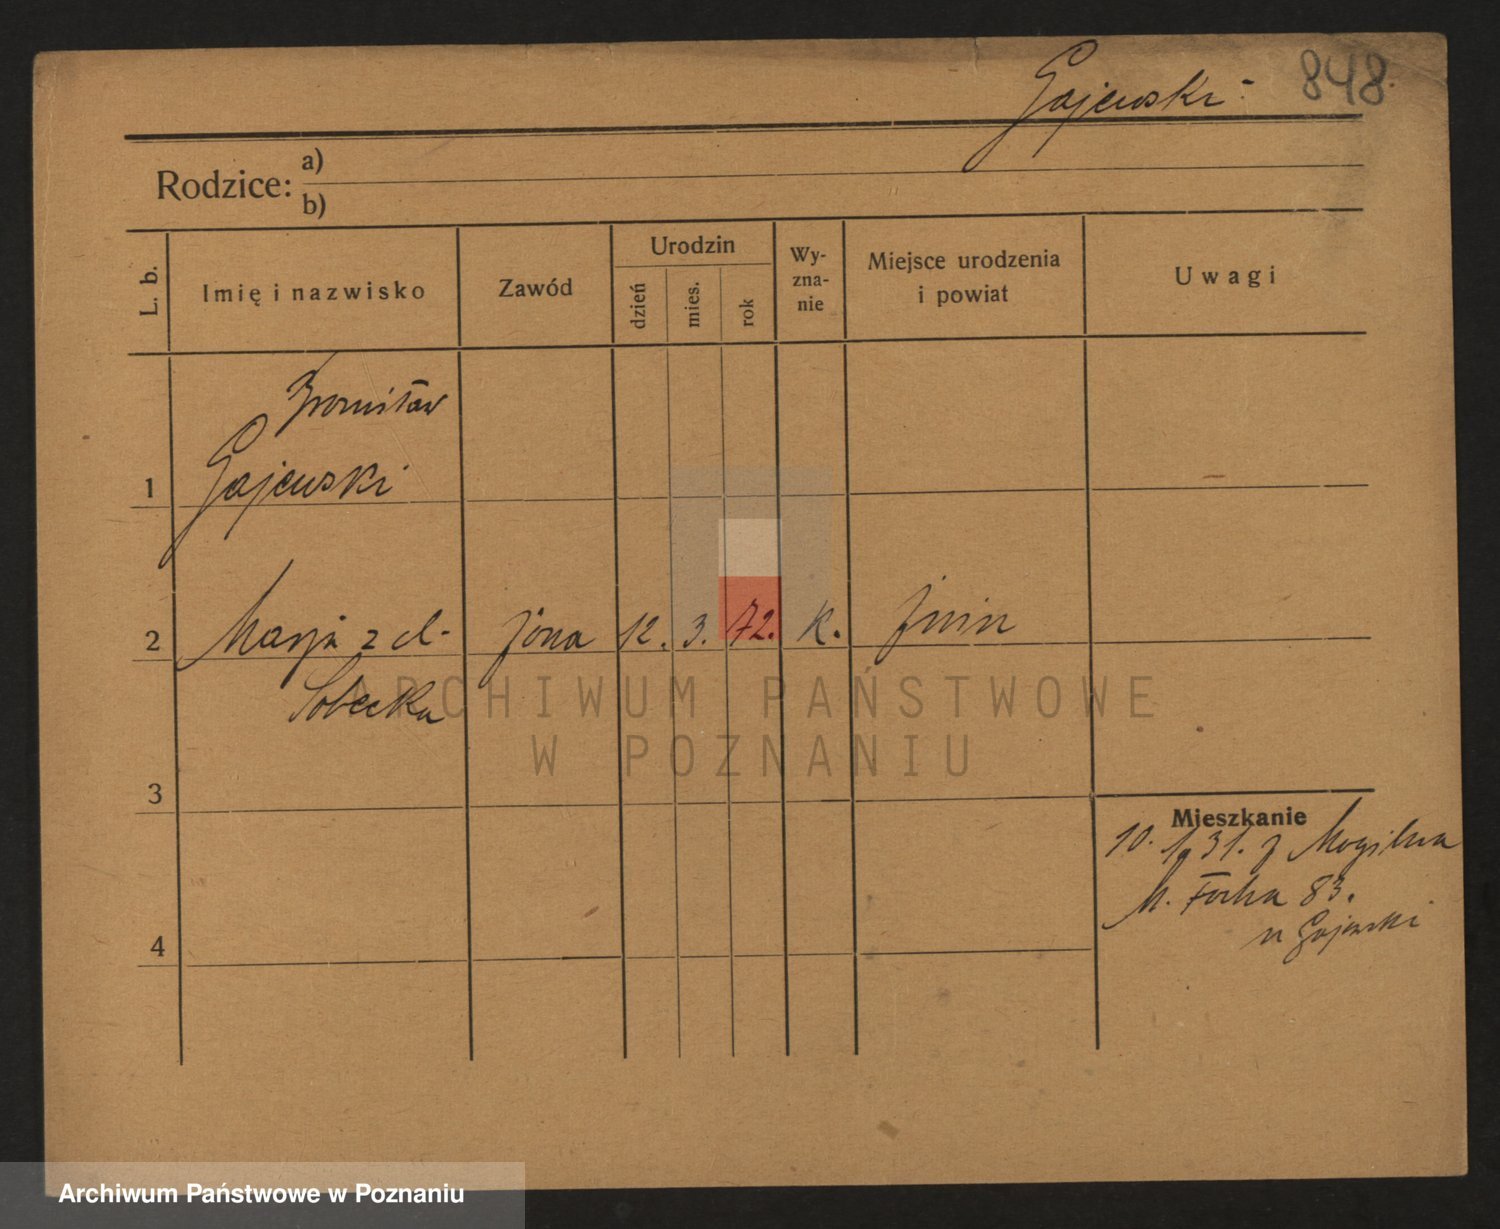 Gajewski
848.
Rodzice: a)
b)
L. b.
Imię i nazwisko
Zawód
Urodzin
dzień
mies.
rok
Wy-
zna-
nie
Miejsce urodzenia
i powiat
Uwagi
Bronisław
1 Gajewski
2 Marja z d. żona 12. 3. 72. k. Żnin
Sobecka
ARCHIWUM PAŃSTWOWE
W POZNANIU
3
Mieszkanie
10. 1. 31. z Mogilna
M. Focha 83.
u Gajewski
4
Archiwum Państwowe w Poznaniu